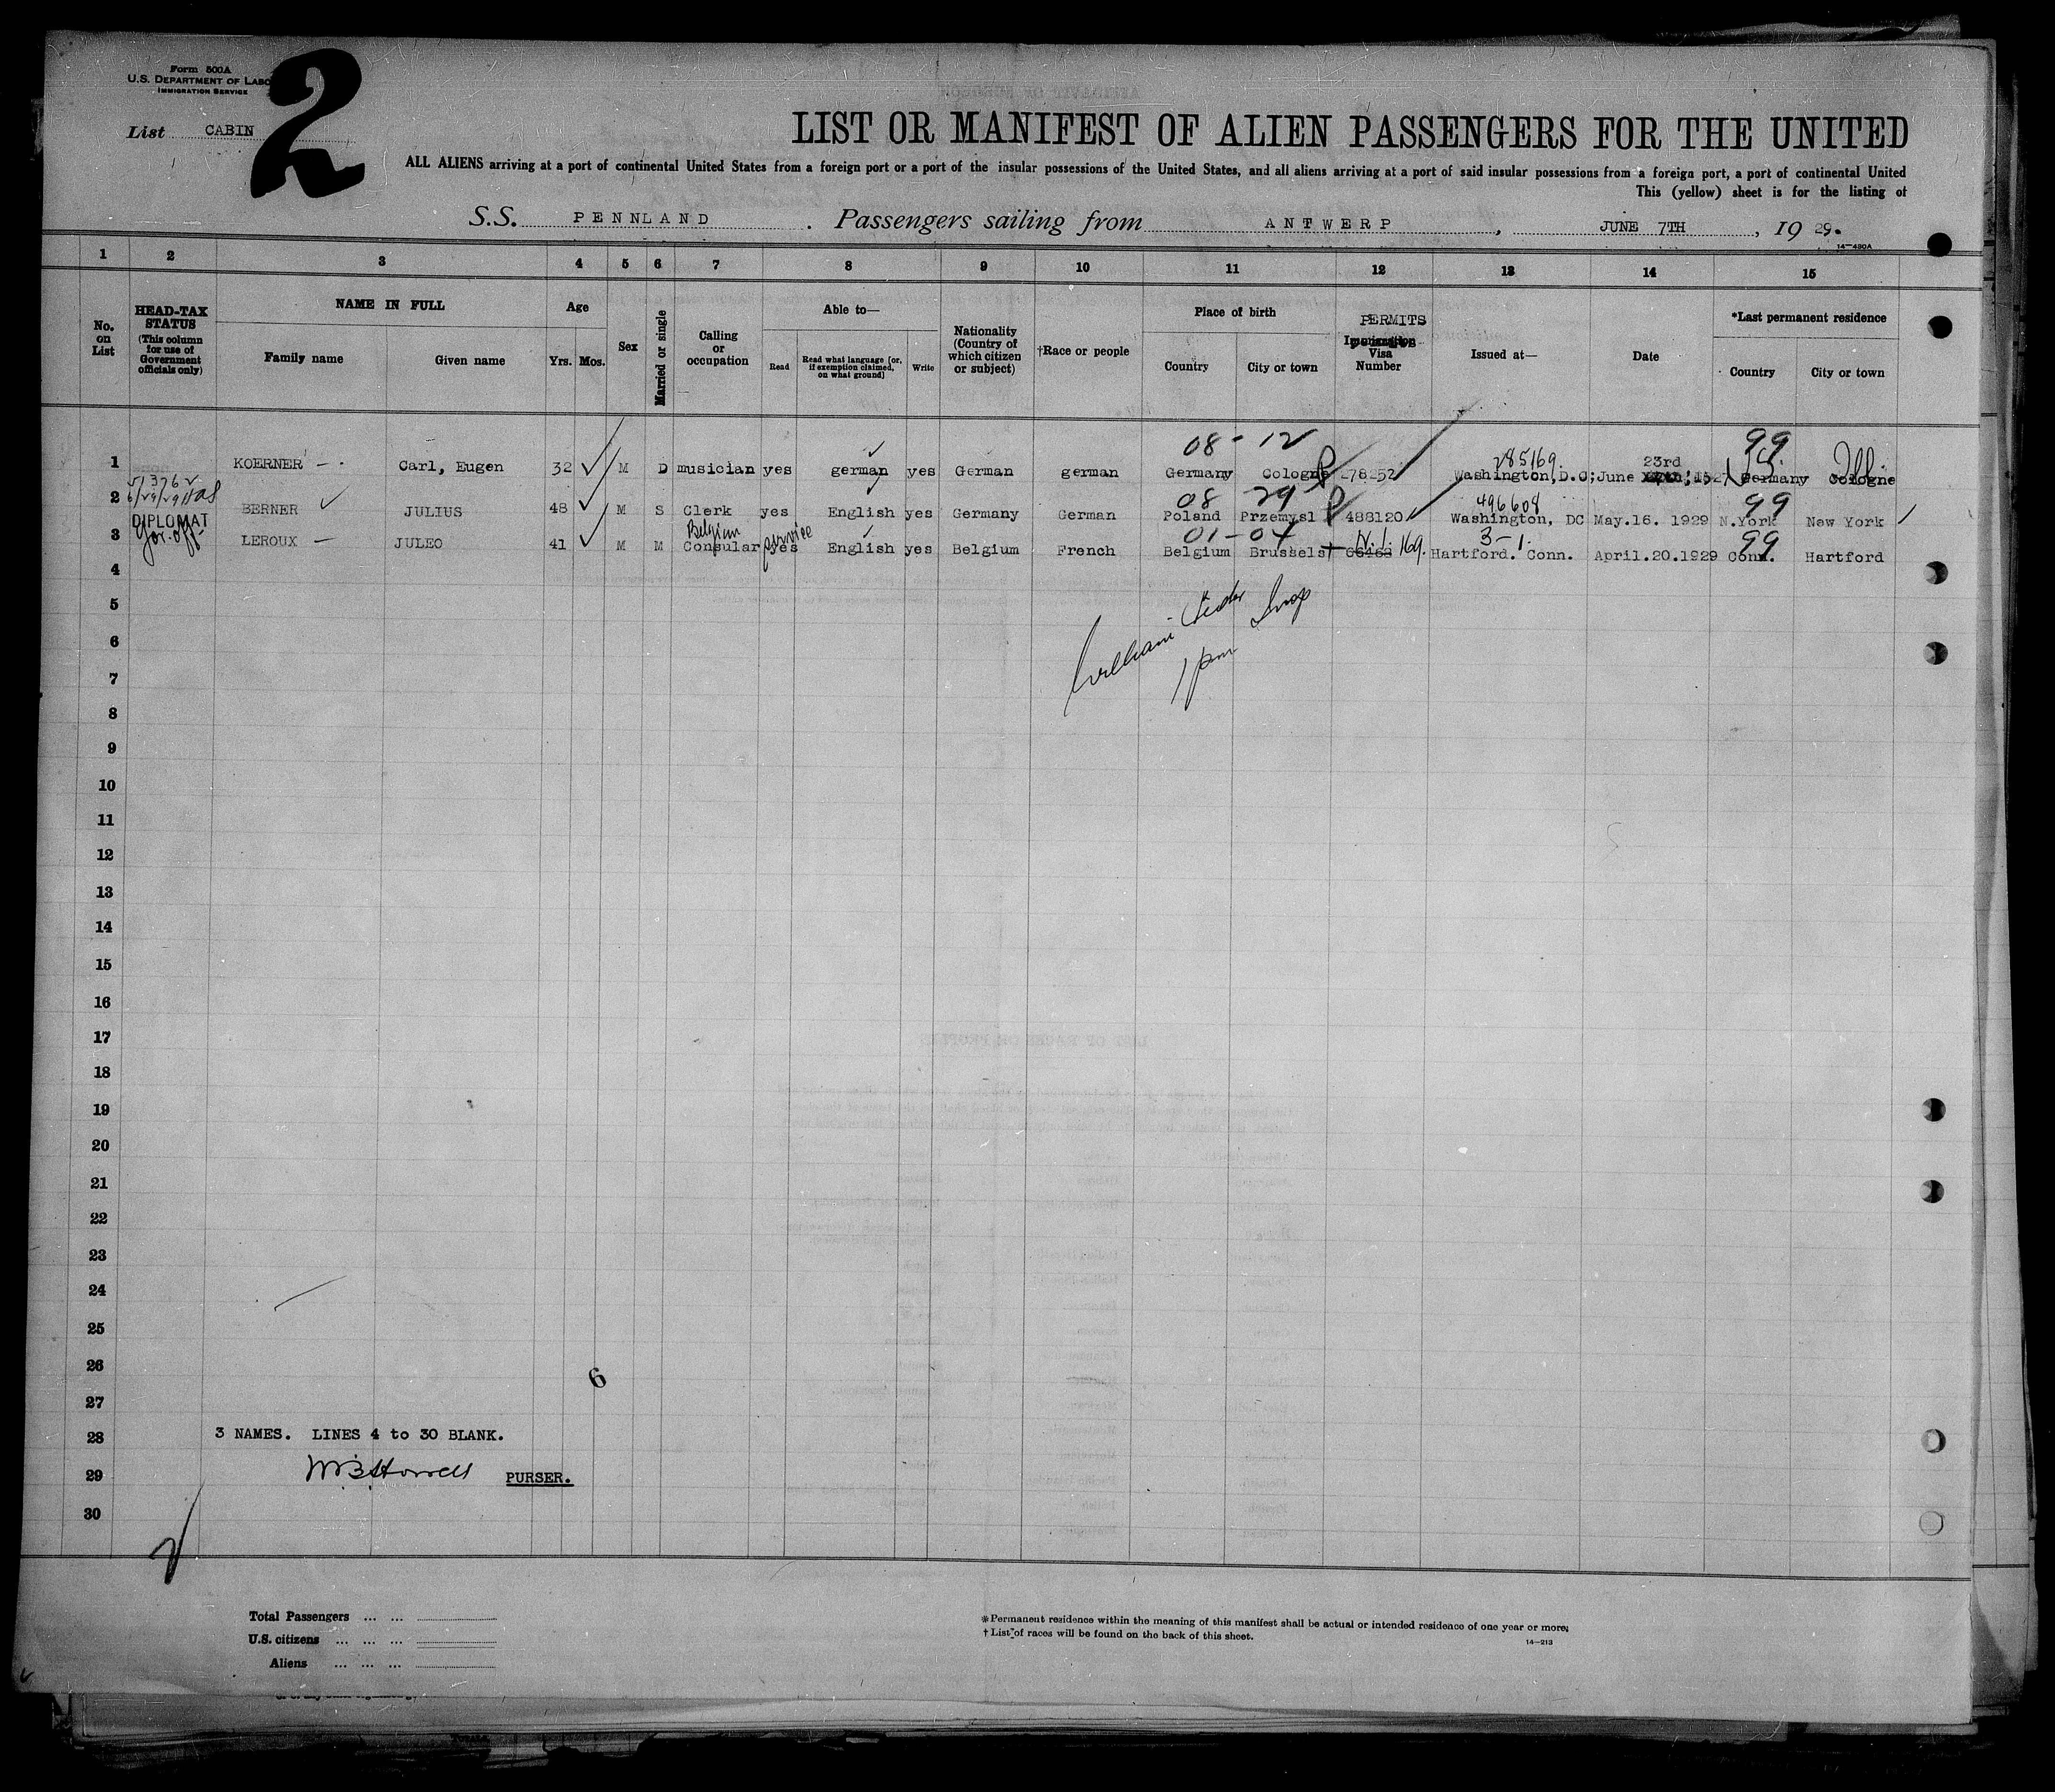 Form 500A
U.S. DEPARTMENT OF LABO
IMMIGRATION SERVICE
2
List CABIN
LIST OR MANIFEST OF ALIEN PASSENGERS FOR THE UNITED
ALL ALIENS arriving at a port of continental United States from a foreign port or a port of the insular possessions of the United States, and all aliens arriving at a port of said insular possessions from a foreign port, a port of continental United
This (yellow) sheet is for the listing of
S.S. PENNLAND . Passengers sailing from ANTWERP , JUNE 7TH , 19 29.
14—480A
1 2 3 4 5 6 7 8 9 10 11 12 13 14 15
No. on List
HEAD-TAX STATUS (This column for use of Government officials only)
NAME IN FULL
Family name Given name
Age
Yrs. Mos.
Sex
Married or single
Calling or occupation
Able to—
Read Read what language (or, if exemption claimed, on what ground) Write
Nationality (Country of which citizen or subject)
†Race or people
Place of birth
Country City or town
PERMITS
Immigration Visa Number
Issued at—
Date
*Last permanent residence
Country City or town
08 - 12 285169 23rd 99
1 KOERNER Carl, Eugen 32 M D musician yes german yes German german Germany Cologne 278252 Washington,D.C; June Germany Cologne
51376
6/29/29
08 29 496608 99
2 BERNER JULIUS 48 M S Clerk yes English yes Germany German Poland Przemysl 488120 Washington, DC May.16. 1929 N.York New York
DIPLOMAT
Gov. off.
Belgian service 01-04 V.I. 169. 3-1. 99
3 LEROUX JULEO 41 M M Consular yes English yes Belgium French Belgium Brussels 66463 Hartford. Conn. April.20.1929 Conn. Hartford
4
5
William Insp
6
1 pm
7
8
9
10
11
12
13
14
15
16
17
18
19
20
21
22
23
24
25
26
6
27
28 3 NAMES. LINES 4 to 30 BLANK.
29 PURSER.
30
Total Passengers ... ...
U.S. citizens ... ... ...
Aliens ... ... ...
*Permanent residence within the meaning of this manifest shall be actual or intended residence of one year or more.
† List of races will be found on the back of this sheet.
14—213